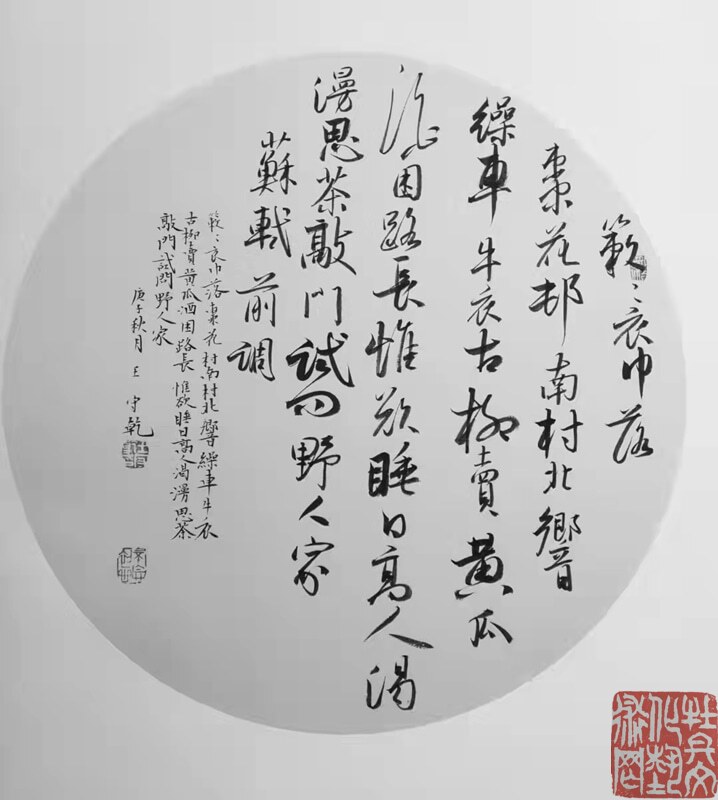 簌〻衣巾落
棗花邨南村北響
繰車牛衣古柳賣黄瓜
酒困路長惟欲睡日高人渴
漫思茶敲門試问野人家
蘇軾前調
簌〻衣巾落棗花村南村北響繰車牛衣
古柳賣黄瓜酒困路長惟欲睡日高人渴漫思茶
敲門試問野人家
庚子秋月王守乾